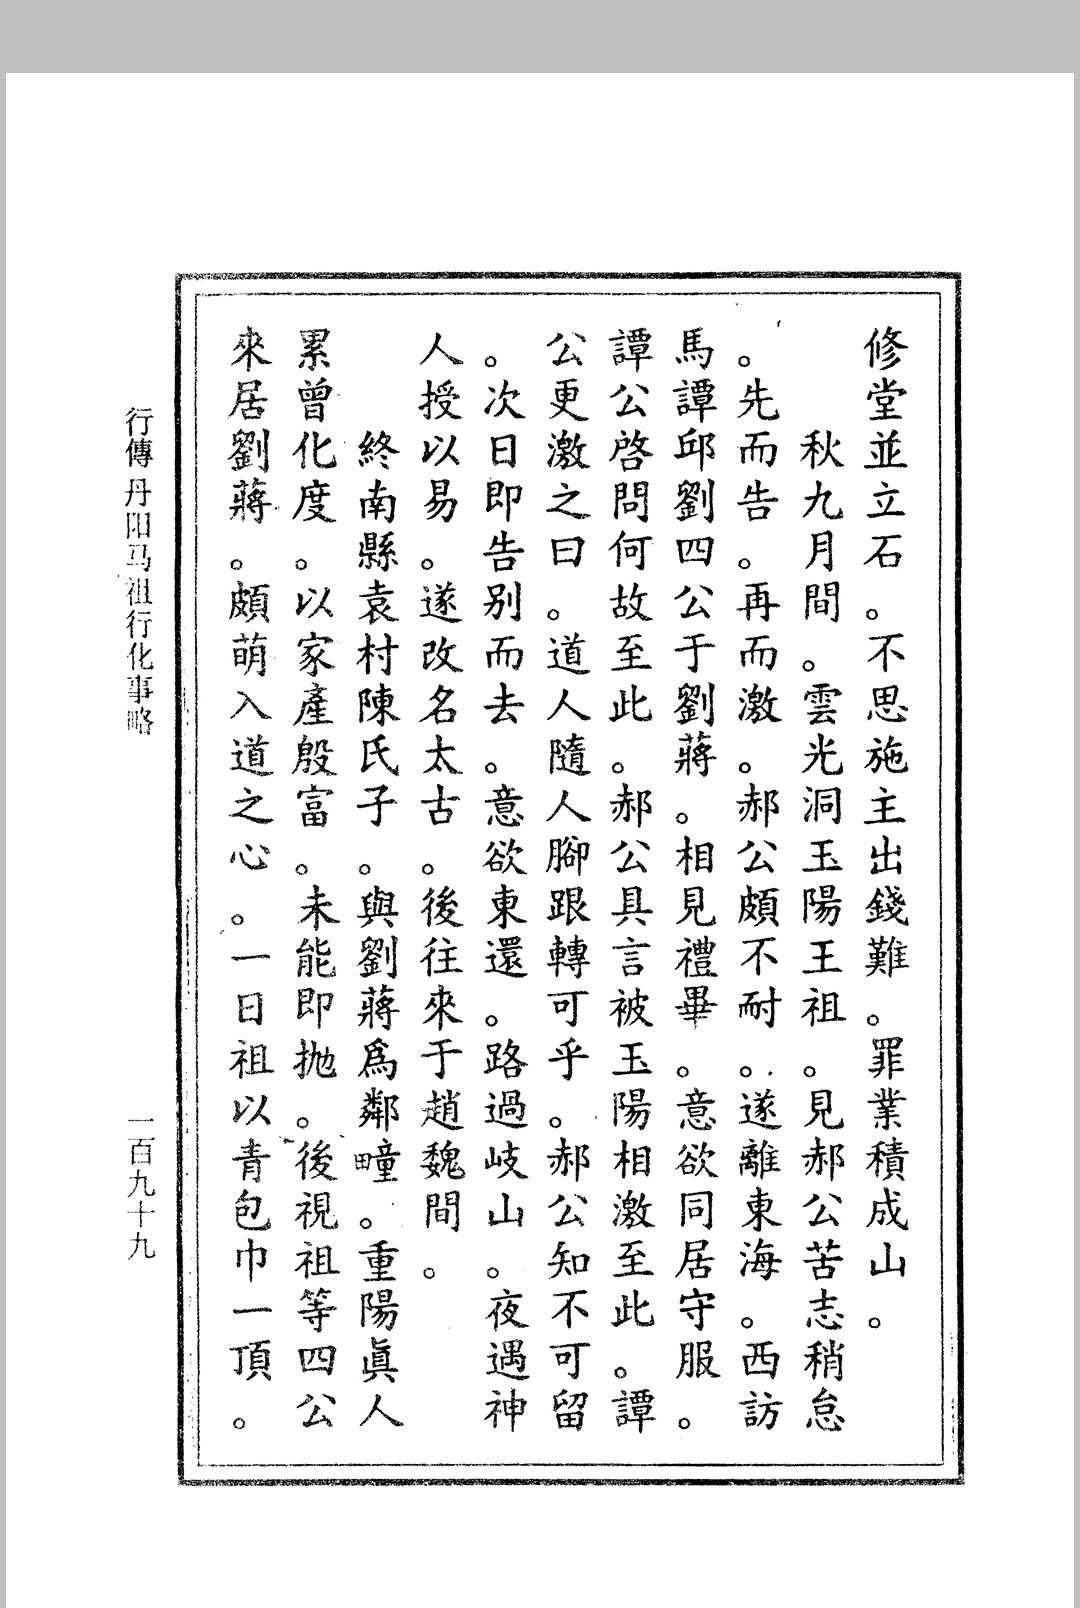 修堂並立石。不思施主出錢難。罪業積成山。
秋九月間。雲光洞玉陽王祖。見郝公苦志稍怠
。先而告。再而激。郝公頗不耐。遂離東海。西訪
馬譚邱劉四公于劉蔣。相見禮畢。意欲同居守服。
譚公啓問何故至此。郝公具言被玉陽相激至此。譚
公更激之曰。道人隨人腳跟轉可乎。郝公知不可留
。次日即告别而去。意欲東還。路過岐山。夜遇神
人授以易。遂改名太古。後往來于趙魏間。
終南縣袁村陳氏子。與劉蔣爲鄰疃。重陽眞人
累曾化度。以家產殷富。未能即抛。後視祖等四公
來居劉蔣。頗萌入道之心。一日祖以青包巾一頂。
行傳 丹阳马祖行化事略
一百九十九